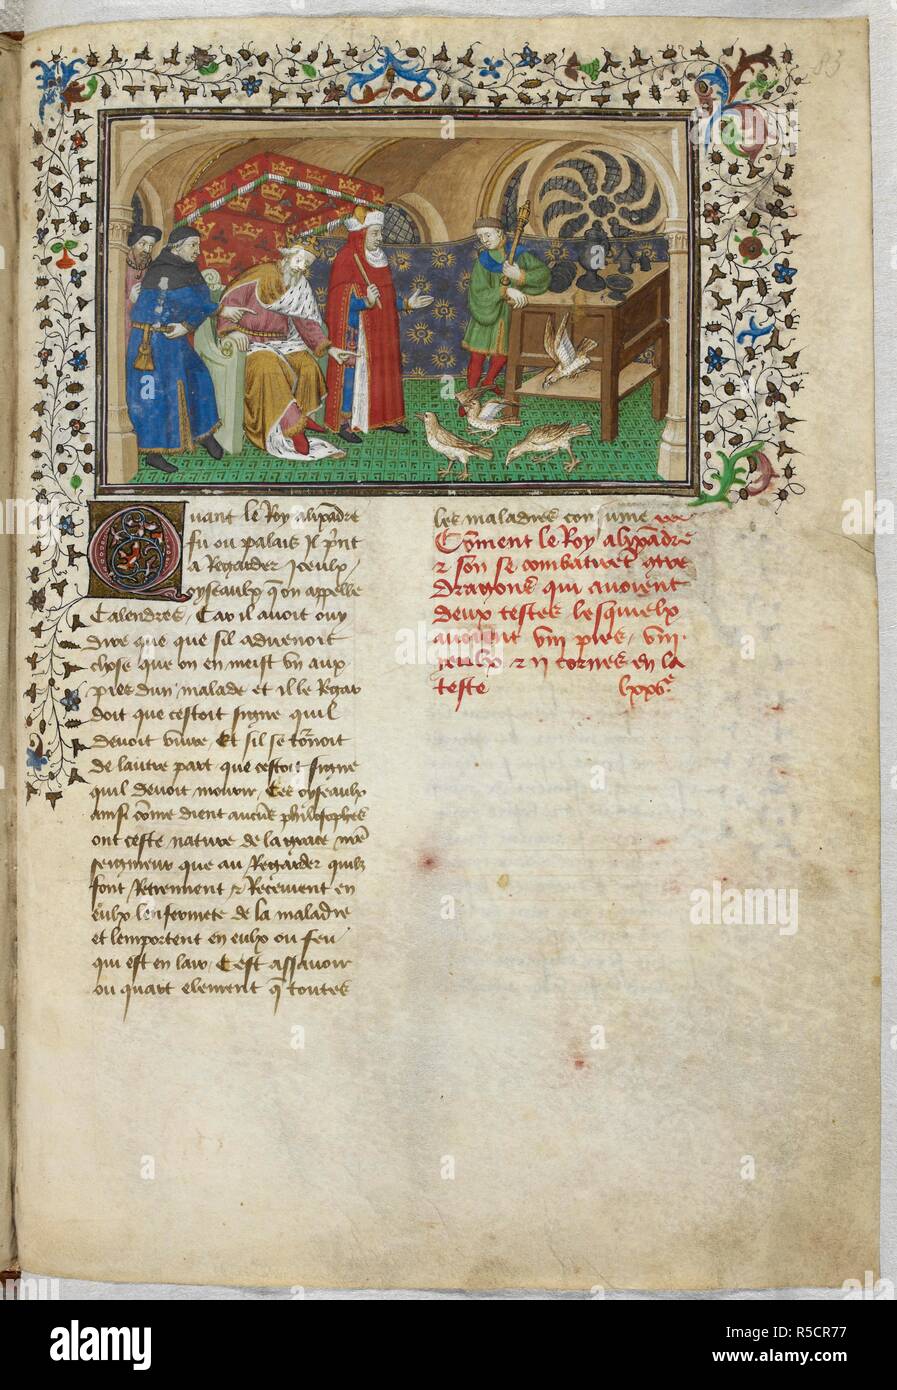 83
Quant le Roy alixandre
fu ou palais Il print
a Regarder Iceulx
oyseaulx q̄ on appelle
Calendres, Car il avoit ouy
dire que que sil aduenoit
chose que on en meist vn aux
pies dun malade et il le Regar
doit que cestoit signe quil
devoit viure, Et sil se to͝noit
de lautre part que cestoit signe
quil devoit mourir, Ces oyseaulx
ainsi cōme dient aucūs philosophes
ont ceste nature de la grace nr̄e
seigneur que au Regarder quilz
font Retiennent & Recoiuent en
eulx lenfermete de la maladie
et lemportent en eulx ou feu
qui est en lair, Cest assauoir
ou quart element q̄ toutes
les maladies consume
Cōment le Roy alixādre
& son se combatirēt
dragons qui avoient
deux testes lesquelx
avoient viij pies, viij
yeulx & ij cornes en la
teste lxxvᵉ
alamy
Image ID: R5CR77
www.alamy.com